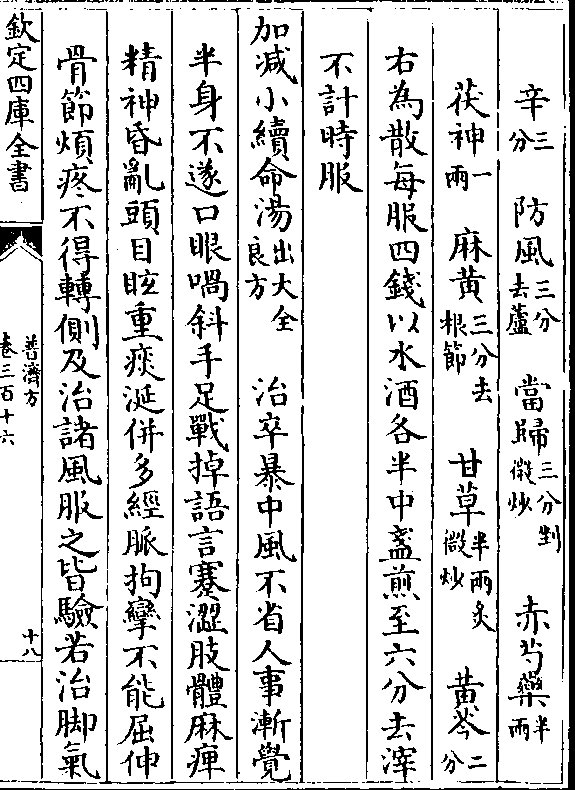 辛三分 防風三分去蘆 當歸三分剉微炒 赤芍藥半兩
茯神一兩 麻黄三分去根節 甘草半兩炙微炒 黄芩二分
右為散每服四錢以水酒各半中盞煎至六分去滓
不計時服
加减小續命湯出大全良方 治卒暴中風不省人事漸覺
半身不遂口眼喎斜手足戰掉語言蹇澀肢體麻痺
精神昏亂頭目眩重痰涎併多經脈拘攣不能屈伸
骨節煩疼不得轉側及治諸風服之皆驗若治脚氣
欽定四庫全書
普濟方
卷三百十六
十八